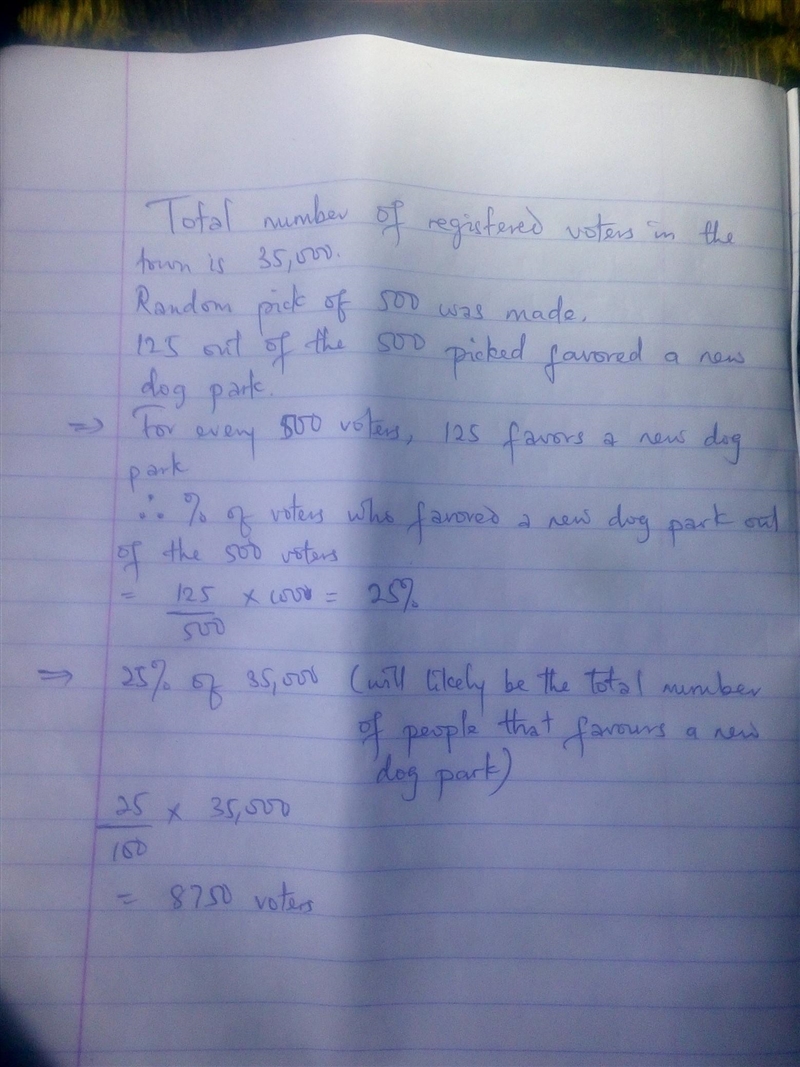 Total number of registered voters in the
town is 35,000.
Random pick of 500 was made.
125 out of the 500 picked favored a new
dog park.
⇒ For every 500 voters, 125 favors a new dog
park
∴ % of voters who favored a new dog park out
of the 500 voters
= 125/500 × = 25%
⇒ 25% of 35,000 (will likely be the total number
of people that favours a new
dog park)
25/100 × 35,000
= 8750 voters